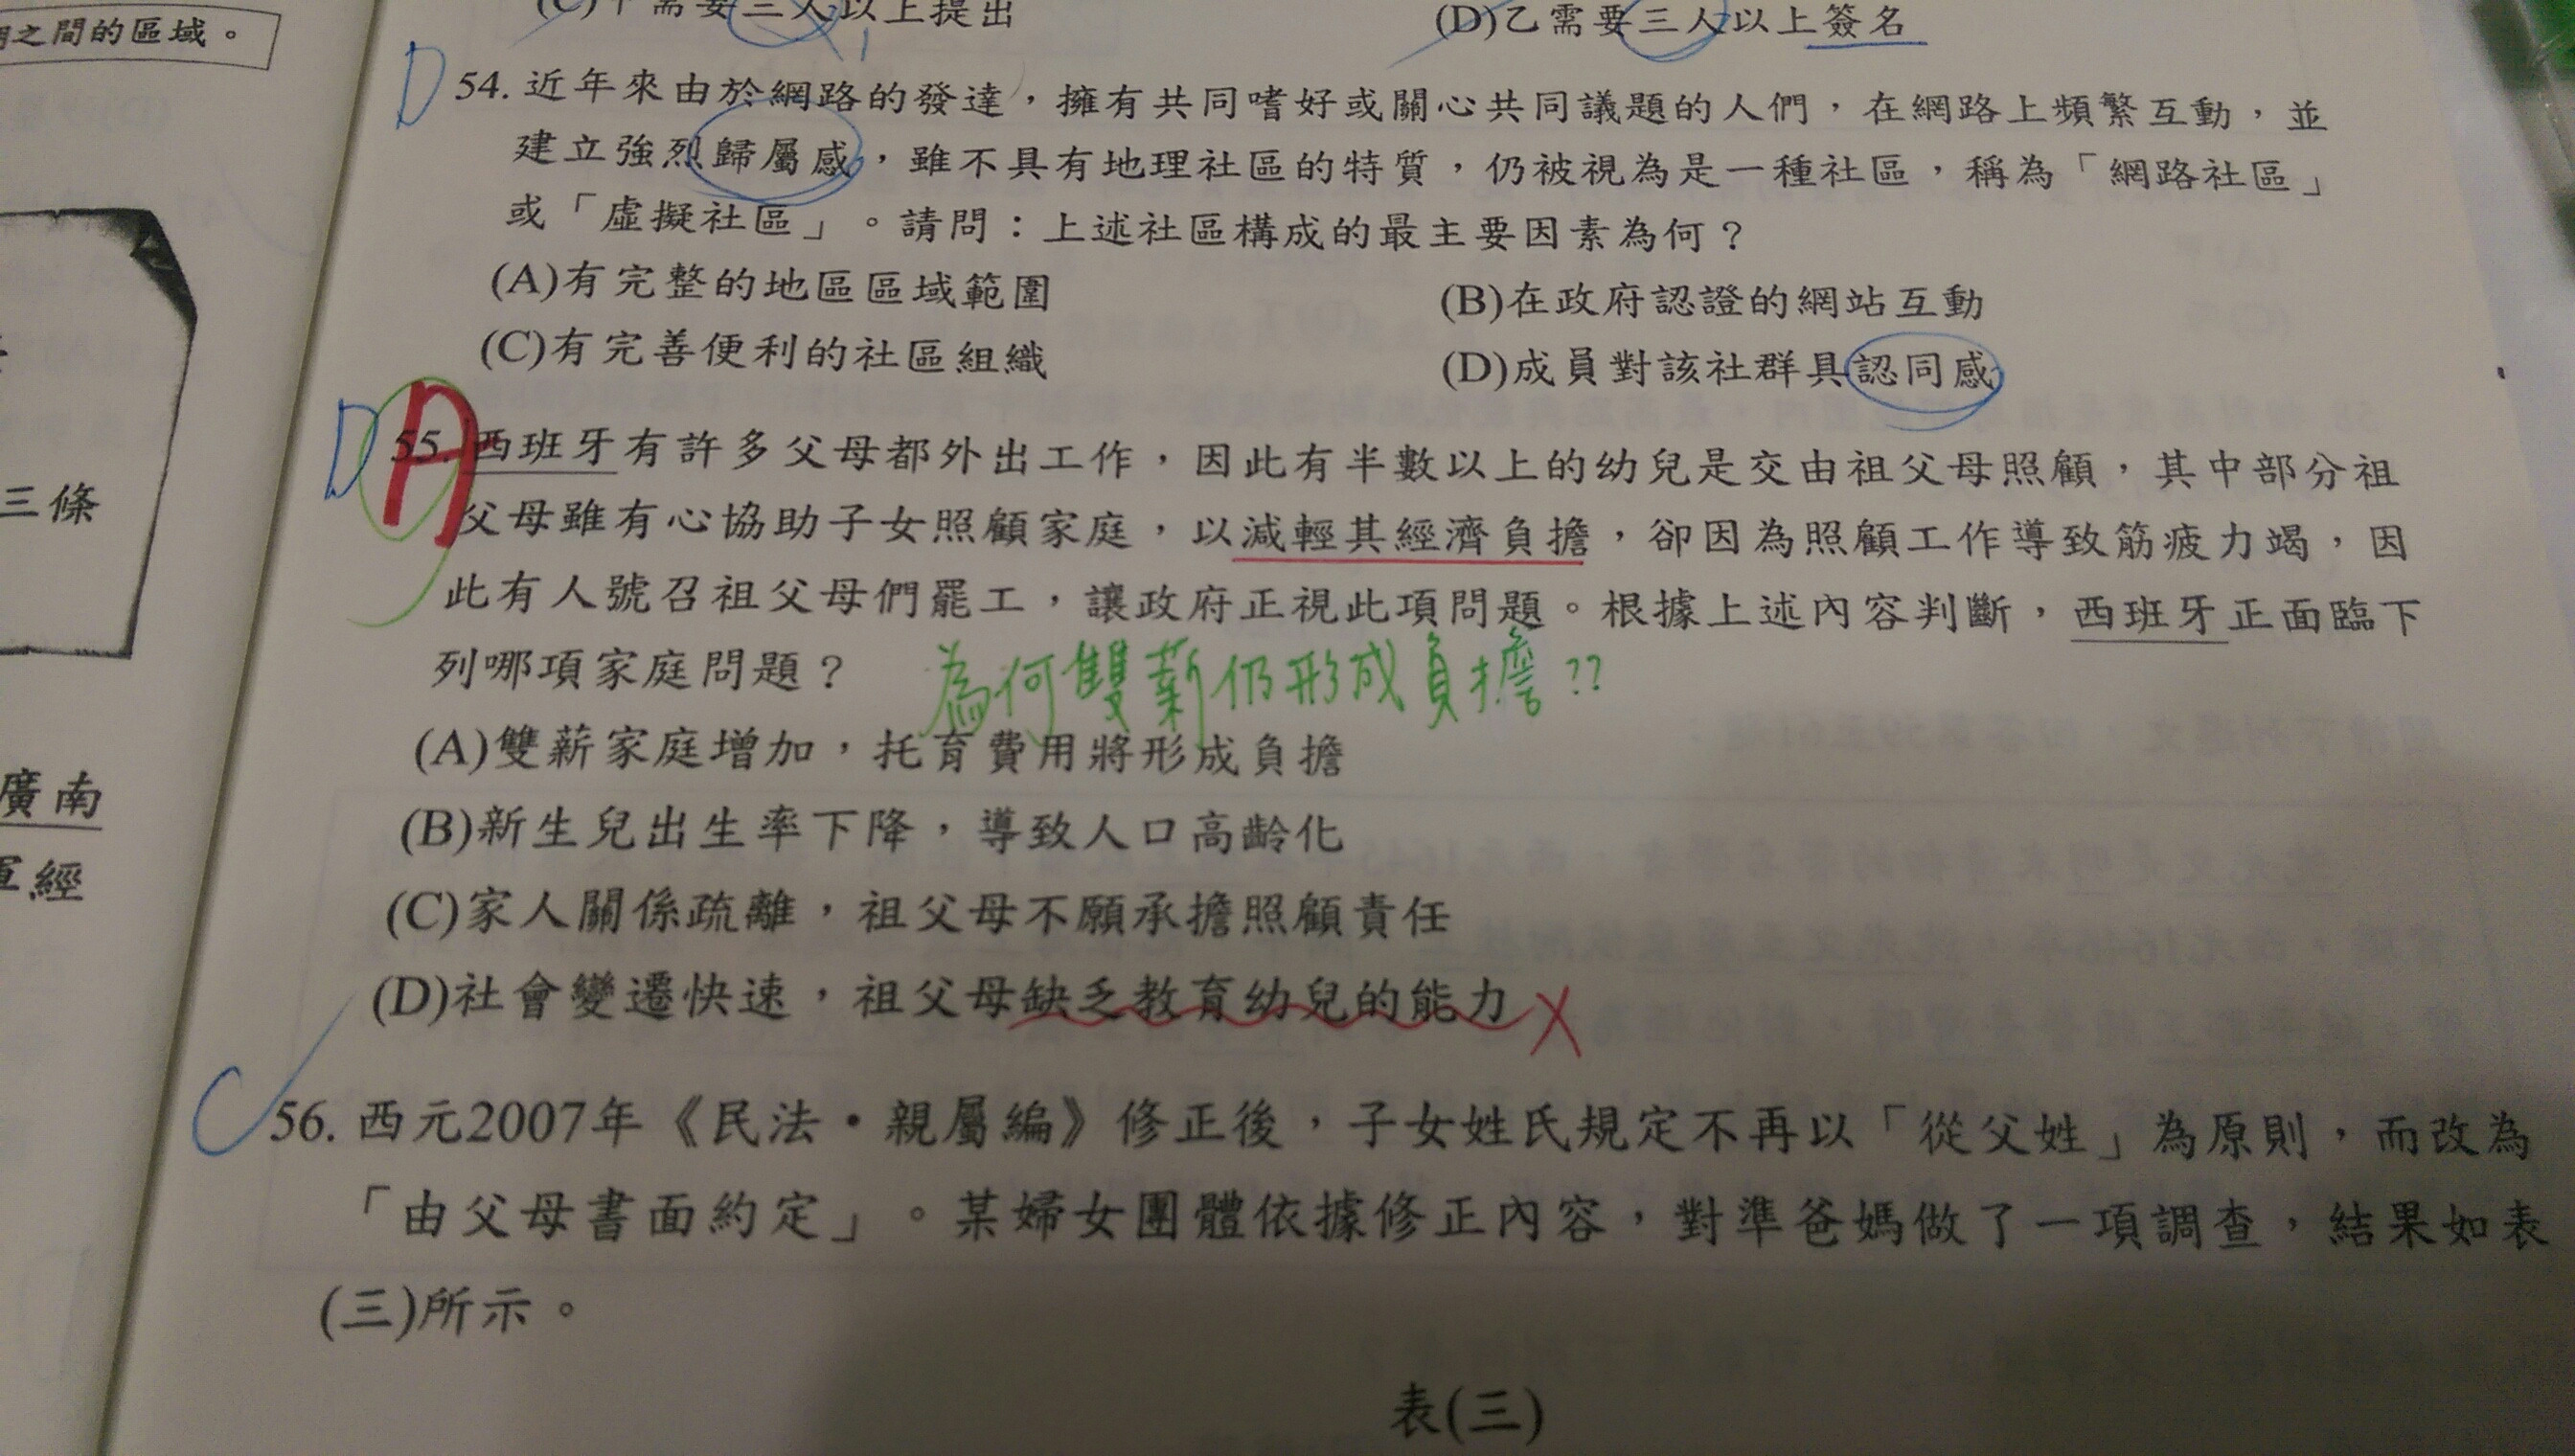 之間的區域。
三條
廣南
經
需要三人以上提出
(D)乙需要三人以上簽名
D
54. 近年來由於網路的發達，擁有共同嗜好或關心共同議題的人們，在網路上頻繁互動，並
建立強烈歸屬感，雖不具有地理社區的特質，仍被視為是一種社區，稱為「網路社區」
或「虛擬社區」。請問：上述社區構成的最主要因素為何？
(A)有完整的地區區域範圍
(B)在政府認證的網站互動
(C)有完善便利的社區組織
(D)成員對該社群具認同感
D A
55. 西班牙有許多父母都外出工作，因此有半數以上的幼兒是交由祖父母照顧，其中部分祖
父母雖有心協助子女照顧家庭，以減輕其經濟負擔，卻因為照顧工作導致筋疲力竭，因
此有人號召祖父母們罷工，讓政府正視此項問題。根據上述內容判斷，西班牙正面臨下
列哪項家庭問題？
為何雙薪仍形成負擔??
(A)雙薪家庭增加，托育費用將形成負擔
(B)新生兒出生率下降，導致人口高齡化
(C)家人關係疏離，祖父母不願承擔照顧責任
(D)社會變遷快速，祖父母缺乏教育幼兒的能力
C
56. 西元2007年《民法·親屬編》修正後，子女姓氏規定不再以「從父姓」為原則，而改為
「由父母書面約定」。某婦女團體依據修正內容，對準爸媽做了一項調查，結果如表
(三)所示。
表(三)